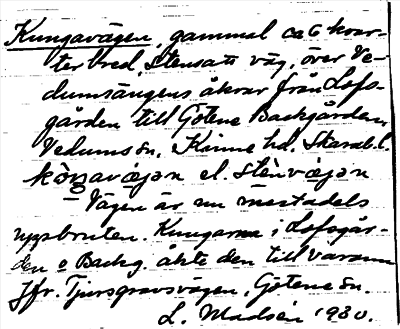 Kungavägen, gammal ca 6 kvar-
ter bred, stensatt väg, över Ve-
dumsängens åkrar från Lofs-
gården till Götene Backgården,
Vedums sn, Kinne hd. Skarab.l.
kŏŋavægən el. Stènvægən
Vägen är nu mestadels
uppbruten. Kungarna i Lofsgår-
den o Backg. åkte den till varann
Jfr. Tjursgravsvägen, Götene sn.
L. Madsén 1930.